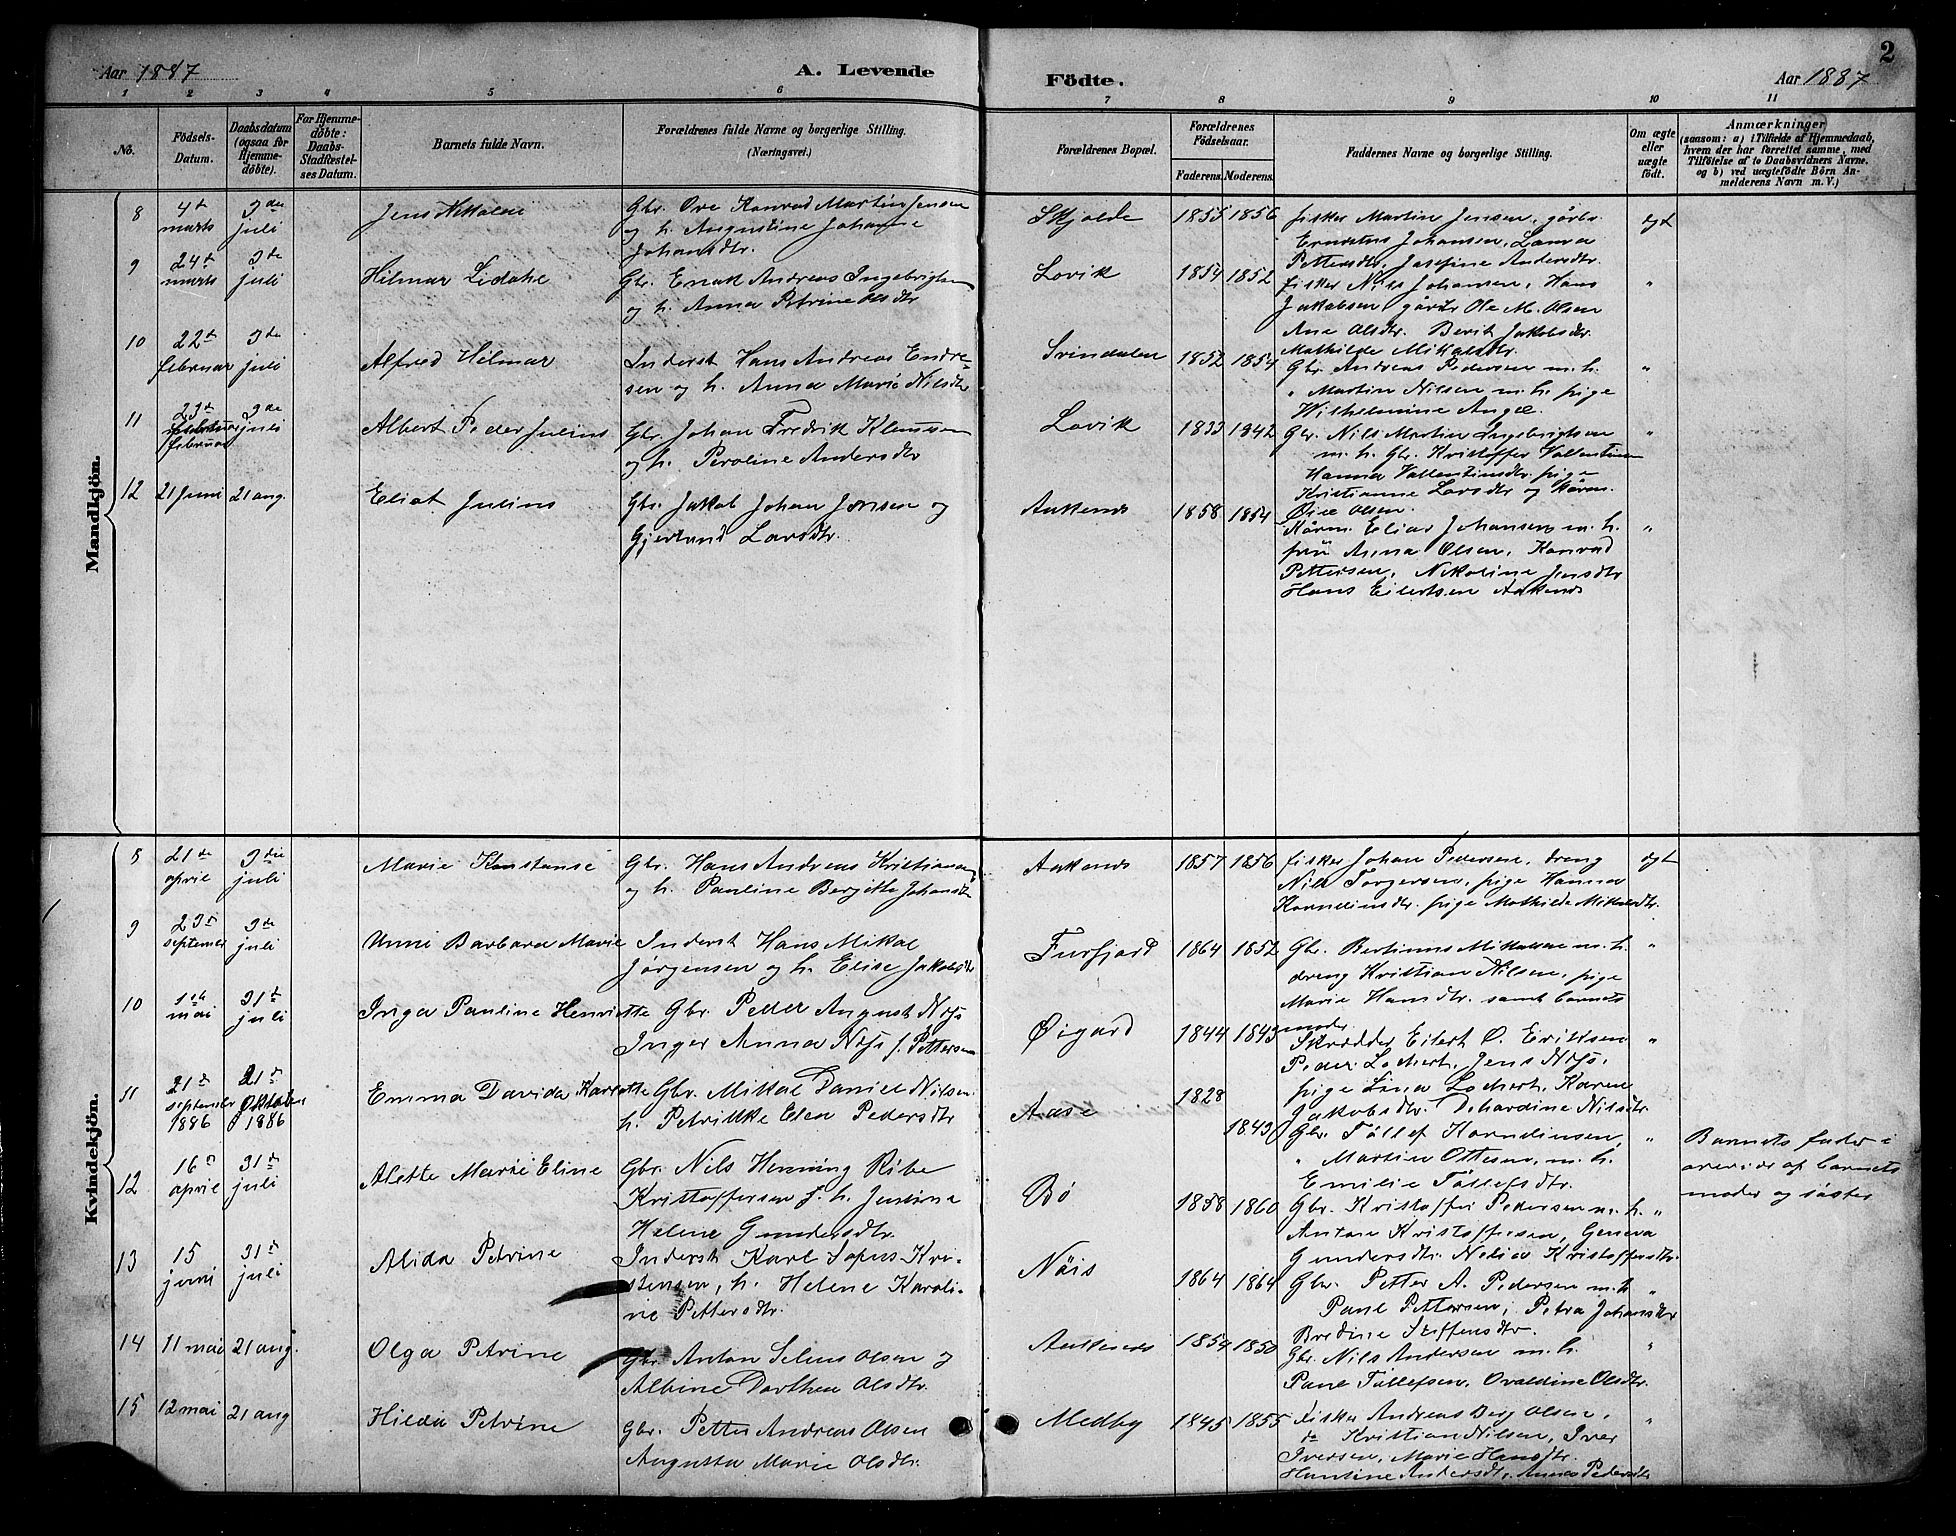 Aar 1887
A. Levende
Födte.
Aar 1887
2
1 2 3 4 5 6 7 8 9 10 11
No.
Födsels-
Datum.
Daabsdatum
(ogsaa for
Hjemme-
døbte).
For Hjemme-
døbte:
Daabs-
Stadfæstel-
ses Datum.
Barnets fulde Navn.
Forældrenes fulde Navne og borgerlige Stilling.
(Næringsvei.)
Forældrenes Bopæl.
Forældrenes
Fødselsaar.
Faderens. Moderens.
Faddernes Navne og borgerlige Stilling.
Om ægte
eller
uægte
födt.
Anmærkninger
(saasom: a) i Tilfælde af Hjemmedaab,
hvem der har forrettet samme, med
Tilföielse af to Daabsvidners Navne.
og b) ved uægtefödte Börn An-
melderens Navn m. V.)
Mandkjön.
8
4de
marts
3die
juli
Jens Nikolai
Gbr. Ove Konrad Martin Jensen
og h. Augustine Johanne
Johansdtr.
Skjolde
1855 1856
fisker Martin Jensen, gårbr.
Johansen, Laura
Pettersdtr, Josefine Andersdtr.
ægt
9
24de
marts
3de
juli
Hilmar
Gbr. Enok Andreas Ingebrigtsen
og h. Anna Petrine Olsdtr
Lovik
1854 1852
fisker Nils Johansen, Hans
Jakobsen gårbr Ole M. Olsen
Ane Olsdtr. Berit Jakobsdtr.
Mathilde Mikalsdtr.
"
10
22de
februar
3de
juli
Alfred Hilmar
Inderst Hans Andreas Endre-
sen og h. Anna Marie Nilsdtr
Svindalen
1852 1854
Gbr Andreas Pedersen m. h.
" Martin Nilsen m. h. pige
Wilhelmine Angel.
"
11
23de
februar
3de
juli
Albert Peder Julius
Gbr. Johan Fredrik Klemmen
og h. Peroline Andersdtr
Lovik
1833 1842
Gbr. Nils Martin Ingebrigtsen
m. h. Gbr. Kristoffer Vallentinsen
Hanna Vallentinsdtr. pige
Kristianne Larsdtr og
Olsen.
"
12
21 juni
21 aug.
Eliot Julius
Gbr. Jakob Johan Jensen og
Gjertrud Larsdtr.
Aakenes
1858 1854
Elias Johansen m. h.
Anna Olsen, Konrad
Pettersen, Nikoline Jensdtr
Hans Eilertsen Aakenes
"
Kvindekjön.
8
21de
april
3die
juli
Marie Konstanse
Gbr. Hans Andreas Kristiansen
og h. Pauline Bergitte Johansdtr
Aakenes
1857 1856
fisker Johan Pedersen, dreng
Nils Torgersen, pige Hanna
Kornelinsdtr. pige Mathilde Mikalsdtr.
ægt
9
23de
september
3de
juli
Unni Barbara Marie
Inderst Hans Mikal
Jørgensen og h. Elise Jakobsdtr
Furfjord
1864 1852
Gbr. Bertinus Mikkelsen m. h.
dreng Kristian Nilsen, pige
Marie Hansdtr. samt barnets
moder
"
10
1ste
mai
31de
juli
Inga Pauline Henriette
Gbr. Peder August Nøjs
Inger Anna Nøjs f. Pettersen
Øigard
1844 1843
Skrædder Eilert O. Eriksen
Peder Lockert, Jens Nøjs,
pige Lina Lockert, Karen
Jakobsdtr. Dehardine Nilsdtr.
"
11
21de
september
1886
21de
Oktober
1886
Emma Davida Karlotte
Gbr. Mikal Daniel Nilsen
h. Petrikke Elen Pedersdtr
Aase
1828
1843
Gbr. Tollef Kornelinsen,
" Martin Ottesen, m. h.
Emilie Tollefsdtr.
"
Barnets fader i
af barnets
moder og søster
12
16de
april
31de
juli
Alette Marie Eline
Gbr. Nils Henning Ribe
Kristoffersen f. h. Justine
Helene Gundersdtr.
Bø
1858 1860
Gbr. Kristoffer Pedersen m. h.
Antone Kristoffersen, Geneva
Gundersdtr. Nelia Kristoffersdtr.
"
13
15
juni
31de
juli
Alida Petrine
Inderst Karl Kri-
stensen, h. Helene Karoli-
ne Pettersdtr.
Nöis
1864 1864
Gbr. Petter A. Pedersen m. h
Paul Pettersen, Petra Johansdtr
Bredine Steffensdtr.
"
14
11 mai
21 aug.
Olga Petrine
Gbr. Anton Selius Olsen og
Albine Dorthea Olsdtr.
Aakenes
1859 1850
Gbr. Nils Andersen m. h.
Paul Tollefsen, Ovaldine Olsdtr.
"
15
12 mai
21 aug
Hilda Petrine
Gbr. Petter Andreas Olsen
Augusta Marie Olsdtr.
Medby
1845 1855
Fisker Andreas Berg Olsen,
do Kristian Nilsen, Iver
Iversen, Marie Hansdtr.
Hansine Andersdtr, Anna Pedersdtr
"